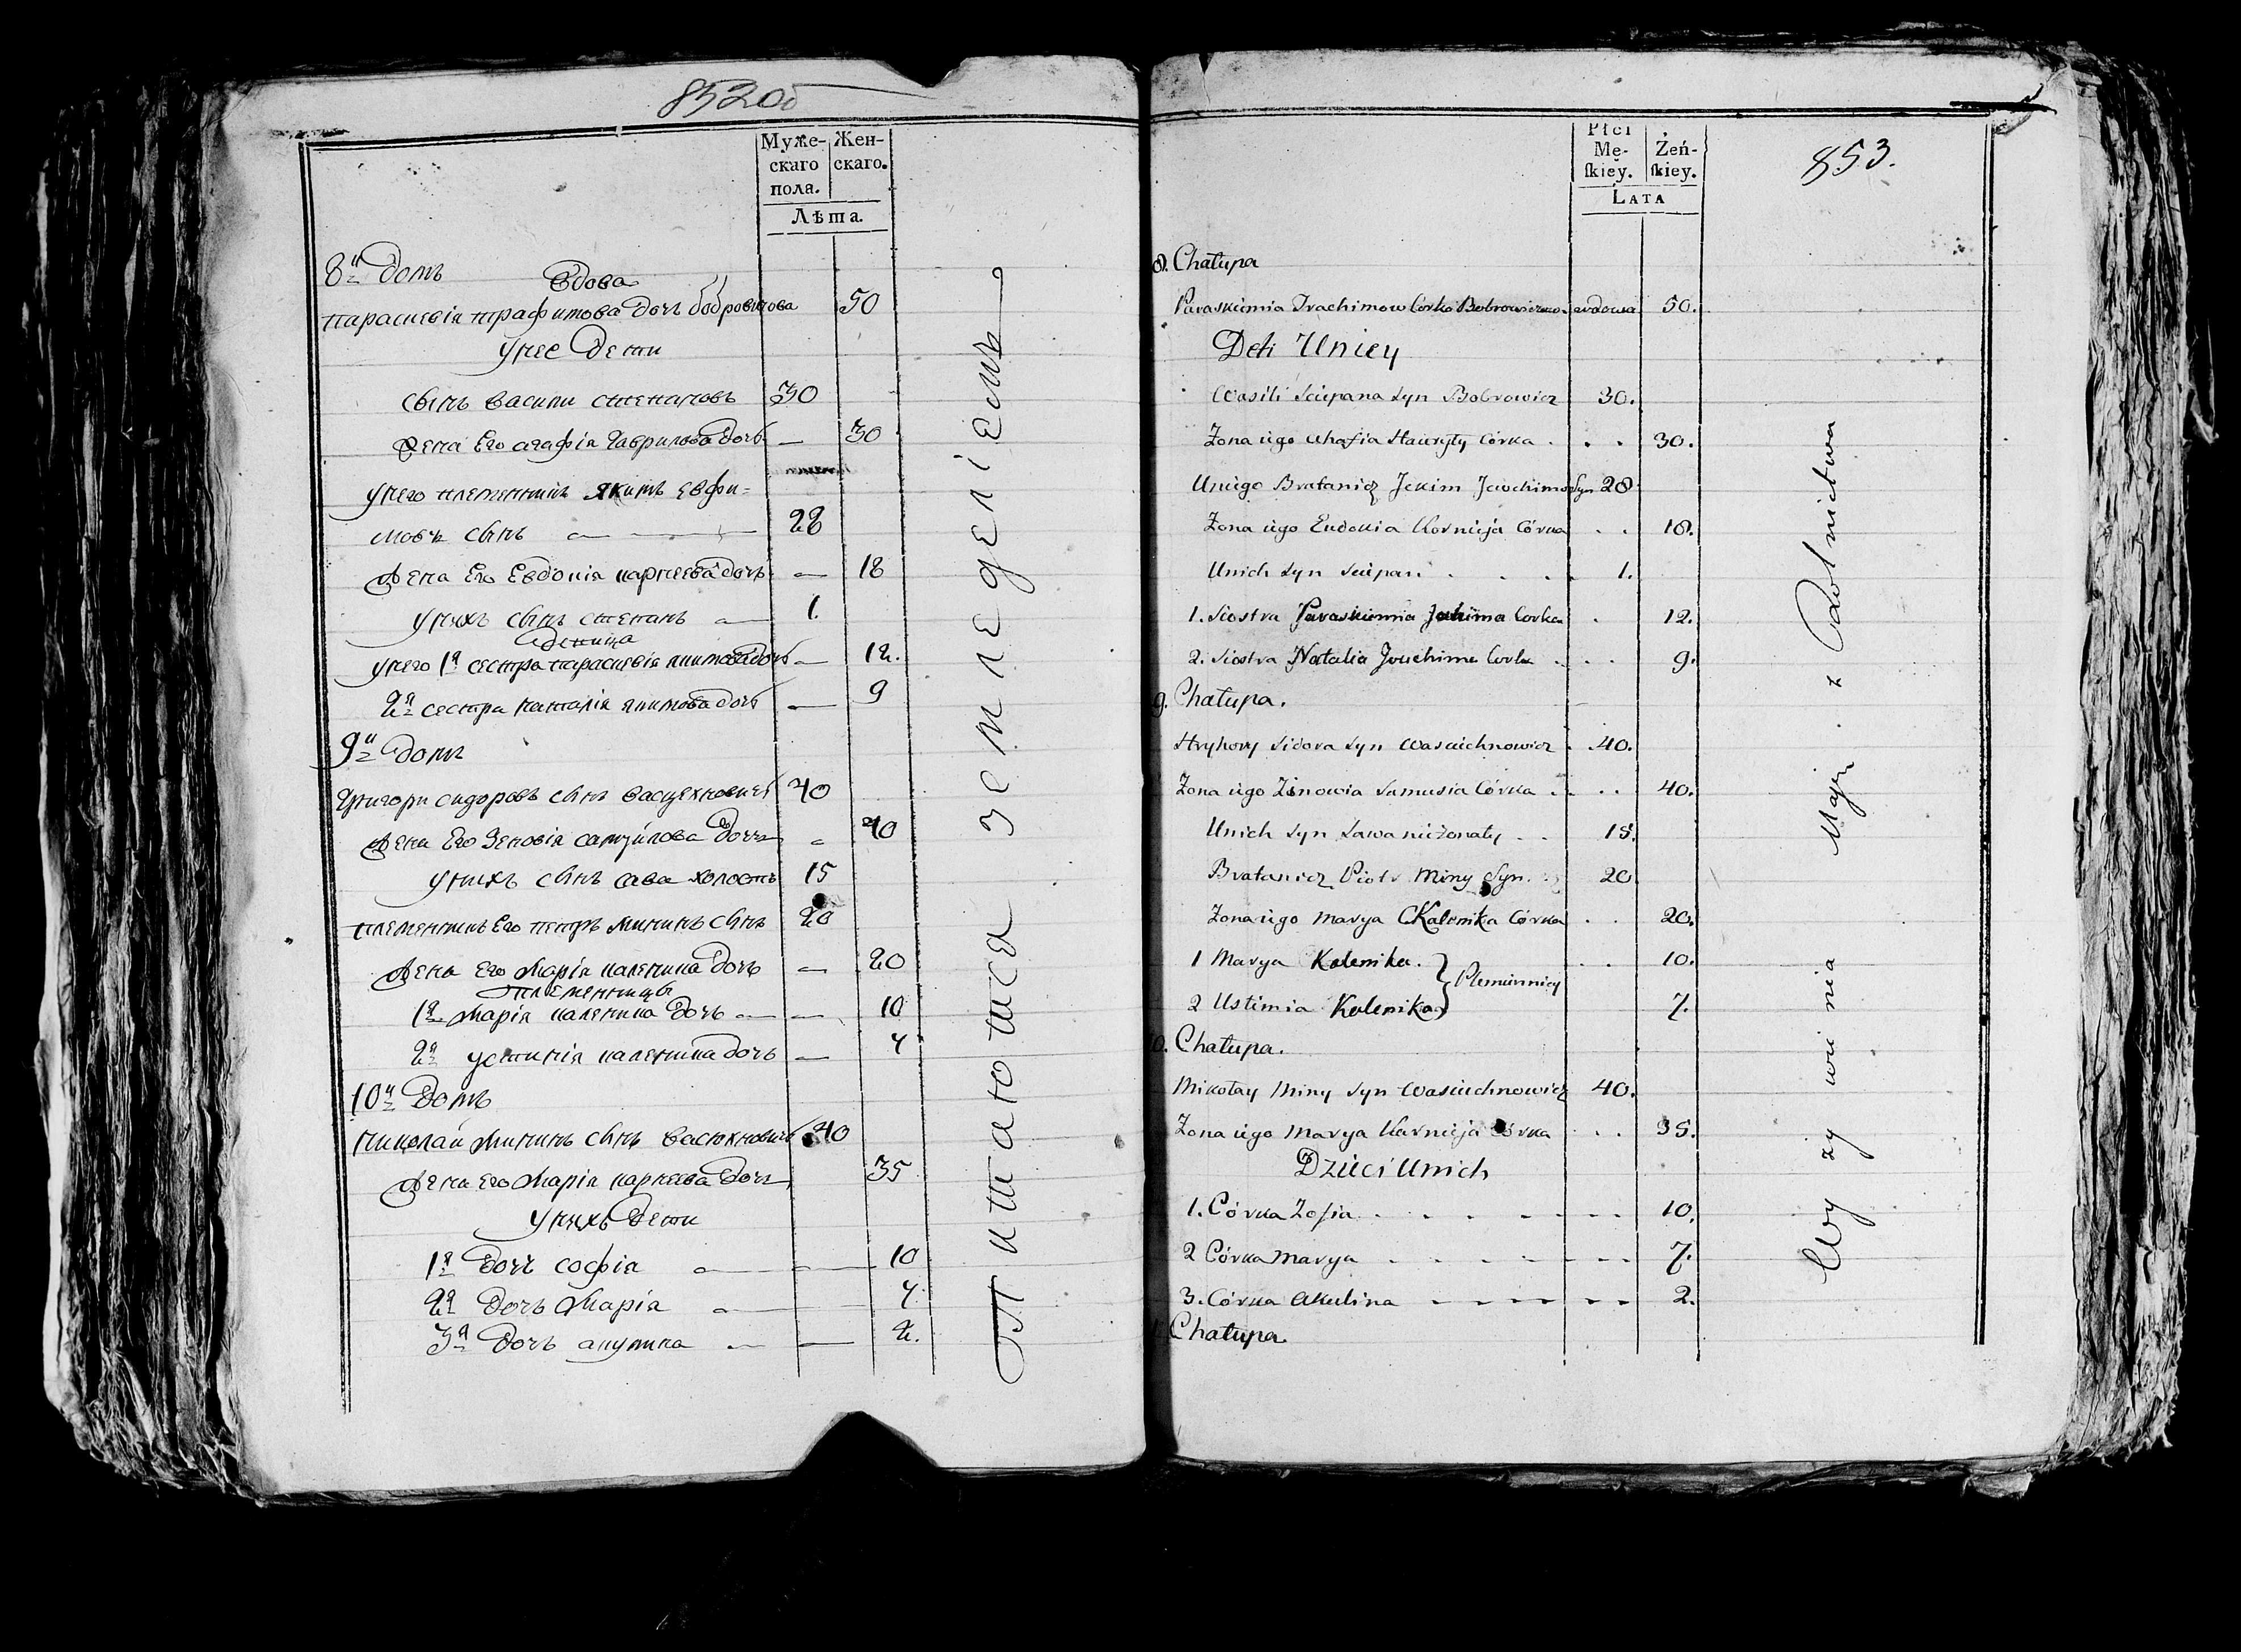 852об
Муже-
скаго
пола.
Жен-
скаго.
Лѣта.
8й Домъ
Вдова
Парасковія трафимова Дочь бобровичова 50
У нее Дети
Сынъ Васили Степановъ 30
Жена Его агафія Гаврилова Дочь — 30
У него племенникъ Якимъ Евфи=
мовъ Сынъ — 28
Жена Его Евдокія карнеева дочь — 18
У нихъ Сынъ Степанъ — 1
Девица
У него 1я сестра парасковія якимова дочь — 12.
2я сестра наталія якимова дочь — 9
9й Домъ
Григори сидоровъ Сынъ Васцехновичъ 40
Жена Его Зеновія самуйлова Дочь 40
У нихъ Сынъ сава холостъ 15
племенникъ Его петръ Мининъ Сынъ 20
Жена Его Марія каленика Дочь — 20
племенницы
1я Марія каленика Дочь — 10
2я устинія каленика Дочь — 7
10й Домъ
Николай Мининъ Сынъ Васюхновичъ 40
Жена его Марія карнеева Дочь 35
У нихъ Дети
1я Дочь софія — 10
2я Дочь Марія — 7
3я Дочь акулина — 2.
Питаются земледеліемъ
Płci
Mę-
skiey.
Żeń-
skiey.
Lata
853.
8. Chałupa
Paraskiewia Trachimow Córka Bobrowiczowa wdowa 50.
Deti Uniey
Wasili Sciepana Syn Bobrowicz 30.
Żona iego Ahafia Hauryły Córka . . . 30.
Uniego Bratanicz Jakim Jewchimo Syn 28
Żona iego Eudokia Kornieja Córka . . 18.
Unich Syn Sciepan . . . . 1.
1. Siostra Paraskiewia Jakima Corka . 12.
2. Siostra Natalia Jouchima Corka . . . 9.
9. Chałupa.
Hryhory Sidora Syn Wasciuchnowicz . 40.
Żona iego Zinowia Samusia Córka . . . 40.
Unich Syn Sawa nieżonaty . . 15.
Bratanicz Piotr Miny Syn . 20
Żona iego Marya Kalenika Córka . . 20.
1 Marya Kalenika. . . 10.
Plemiennicy
2 Ustimia Kalenika 7.
10. Chałupa.
Mikołay Miny Syn Wasciuchnowicz 40.
Żona iego Marya Karnieja Córka . . 35.
Dzieci Unich
1. Córka Zofia . . . . . . 10.
2 Córka Marya . . . . . . 7.
3. Córka Akulina - - - - - - 2.
Chałupa
Wyżywienia Mają . z Rolnictwa